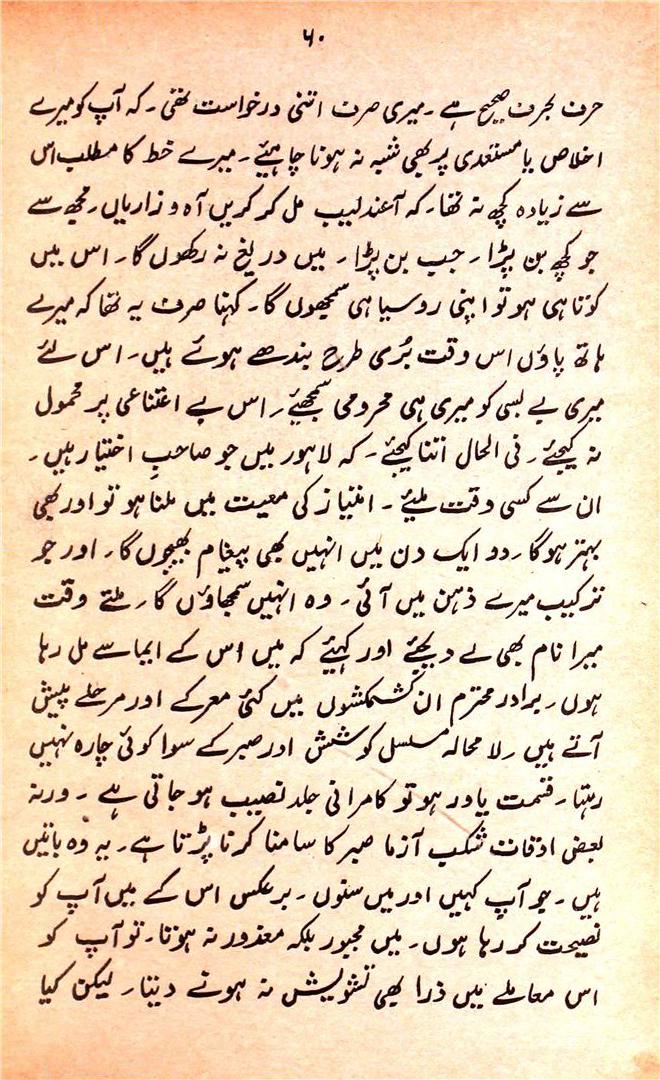 ۶۰
حرف بحرف صحیح ہے ۔ میری صرف اتنی درخواست تھی ۔ کہ آپ کو میرے
اخلاص یا مستعدی پر بھی شبہ نہ ہونا چاہیئے ۔ میرے خط کا مطلب اس
سے زیادہ کچھ نہ تھا ۔ کہ آ عندلیب مل کر کریں آہ و زاریاں ۔ مجھ سے
جو کچھ بن پڑا ۔ جب بن پڑا ۔ میں دریغ نہ رکھوں گا ۔ اس میں
کوتاہی ہو تو اپنی روسیاہی سمجھوں گا ۔ کہنا صرف یہ تھا کہ میرے
ہاتھ پاؤں اس وقت بُری طرح بندھے ہوئے ہیں ۔ اس لئے
میری بے بسی کو میری ہی محرومی سمجھیئے ۔ اس بے اعتناعی پر محمول
نہ کیجئے ۔ فی الحال اتنا کیجئے ۔ کہ لاہور میں جو صاحبِ اختیار ہیں ۔
ان سے کسی وقت ملیئے ۔ امتیاز کی معیت میں ملنا ہو تو اور بھی
بہتر ہو گا ۔ دو ایک دن میں انہیں بھی پیغام بھیجوں گا ۔ اور جو
ترکیب میرے ذہن میں آئی ۔ وہ انہیں سمجھاؤں گا ۔ ملتے وقت
میرا نام بھی لے دیجئے اور کہیئے کہ میں اس کے ایما سے مل رہا
ہوں ۔ برادر محترم ان کشمکشوں میں کئی معرکے اور مرحلے پیش
آتے ہیں ۔ لا محالہ مسلسل کوشش اور صبر کے سوا کوئی چارہ نہیں
رہتا ۔ قسمت یاور ہو تو کامرانی جلد نصیب ہو جاتی ہے ۔ ورنہ
بعض اوقات شکیب آزما صبر کا سامنا کرنا پڑتا ہے ۔ یہ وہ باتیں
ہیں ۔ جو آپ کہیں اور میں سنوں ۔ برعکس اس کے میں آپ کو
نصیحت کر رہا ہوں ۔ میں مجبور بلکہ معذور نہ ہوتا ۔ تو آپ کو
اس معاملے میں ذرا بھی تشویش نہ ہونے دیتا ۔ لیکن کیا